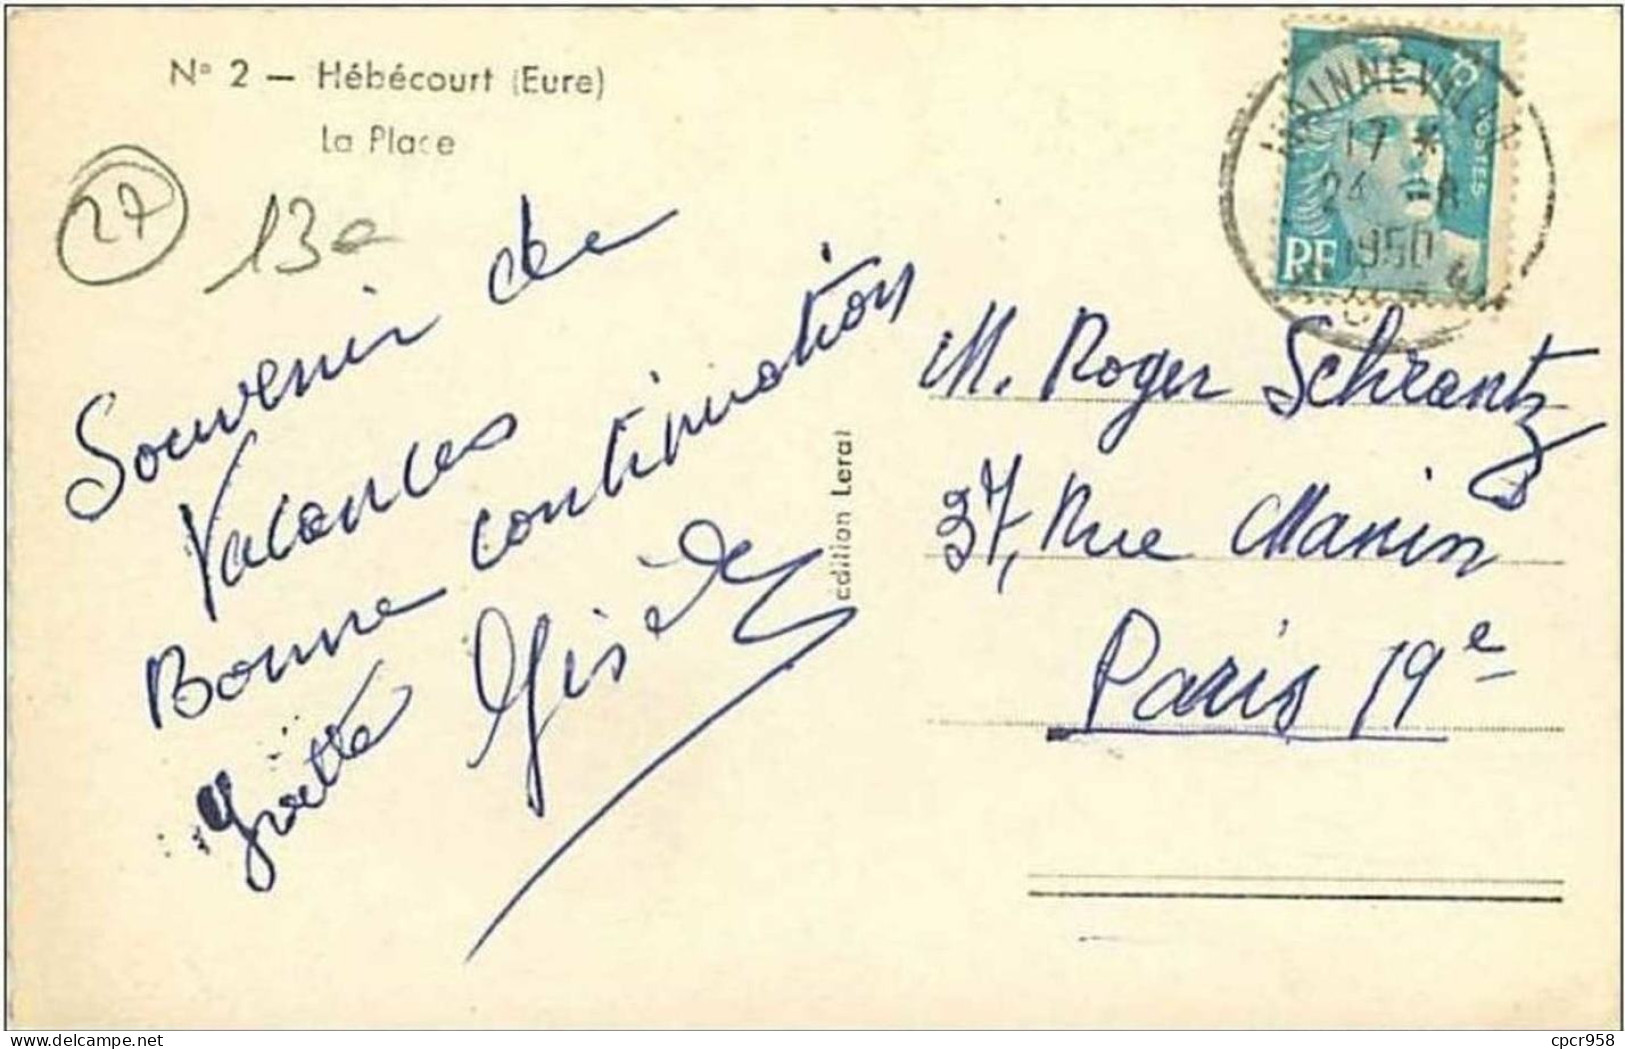 N° 2 — Hébécourt (Eure)
La Place
27
13e
Souvenir de
Vacances
Bonne continuation
Gisèle
édition Leral
8F
POSTES
RF
MAINNEVILLE
17 *
24 -8
1950
M. Roger Schrantz
37, Rue Manin
Paris 19e
cpcr958